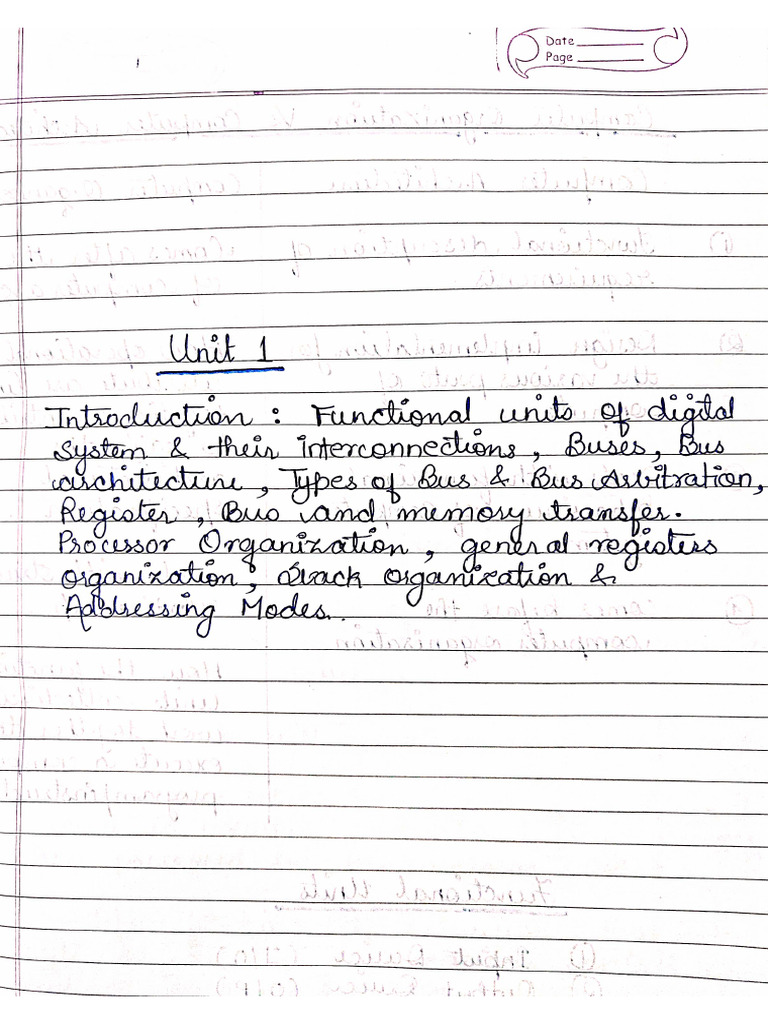 Date
Page
Unit 1
Introduction : Functional units of digital
System & their interconnections, Buses, Bus
architecture, Types of Bus & Bus Arbitration,
Register, Bus and memory transfer.
Processor Organization, general registers
organization, Stack organization &
Addressing Modes.